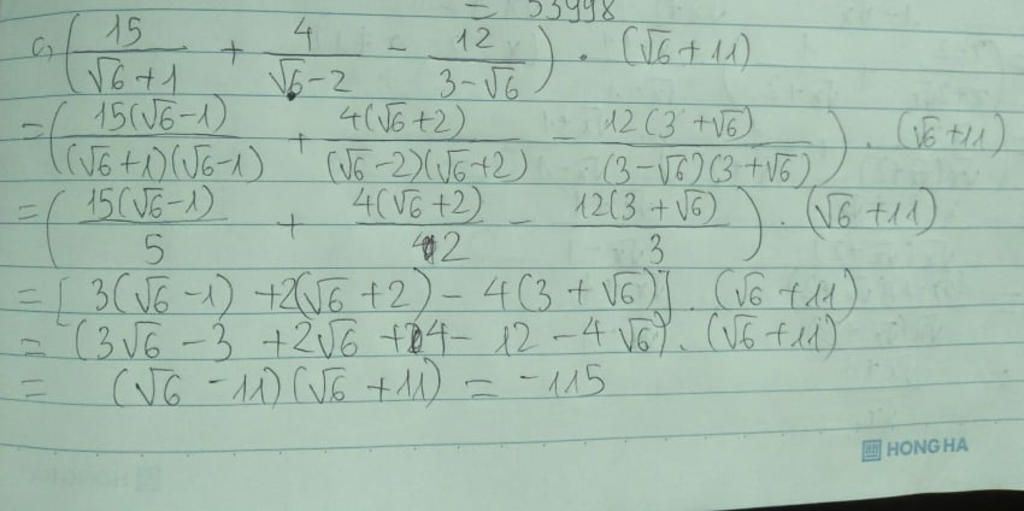 = 53998
c, (15/(√6+1) + 4/(√6-2) - 12/(3-√6)) . (√6+11)
= (15(√6-1)/((√6+1)(√6-1)) + 4(√6+2)/((√6-2)(√6+2)) - 12(3+√6)/((3-√6)(3+√6))) . (√6+11)
= (15(√6-1)/5 + 4(√6+2)/2 - 12(3+√6)/3) . (√6+11)
= [3(√6-1) +2(√6+2) - 4(3+√6)] . (√6+11)
= (3√6 - 3 +2√6 +4 - 12 - 4√6) . (√6+11)
= (√6 - 11)(√6 + 11) = -115
HONG HA